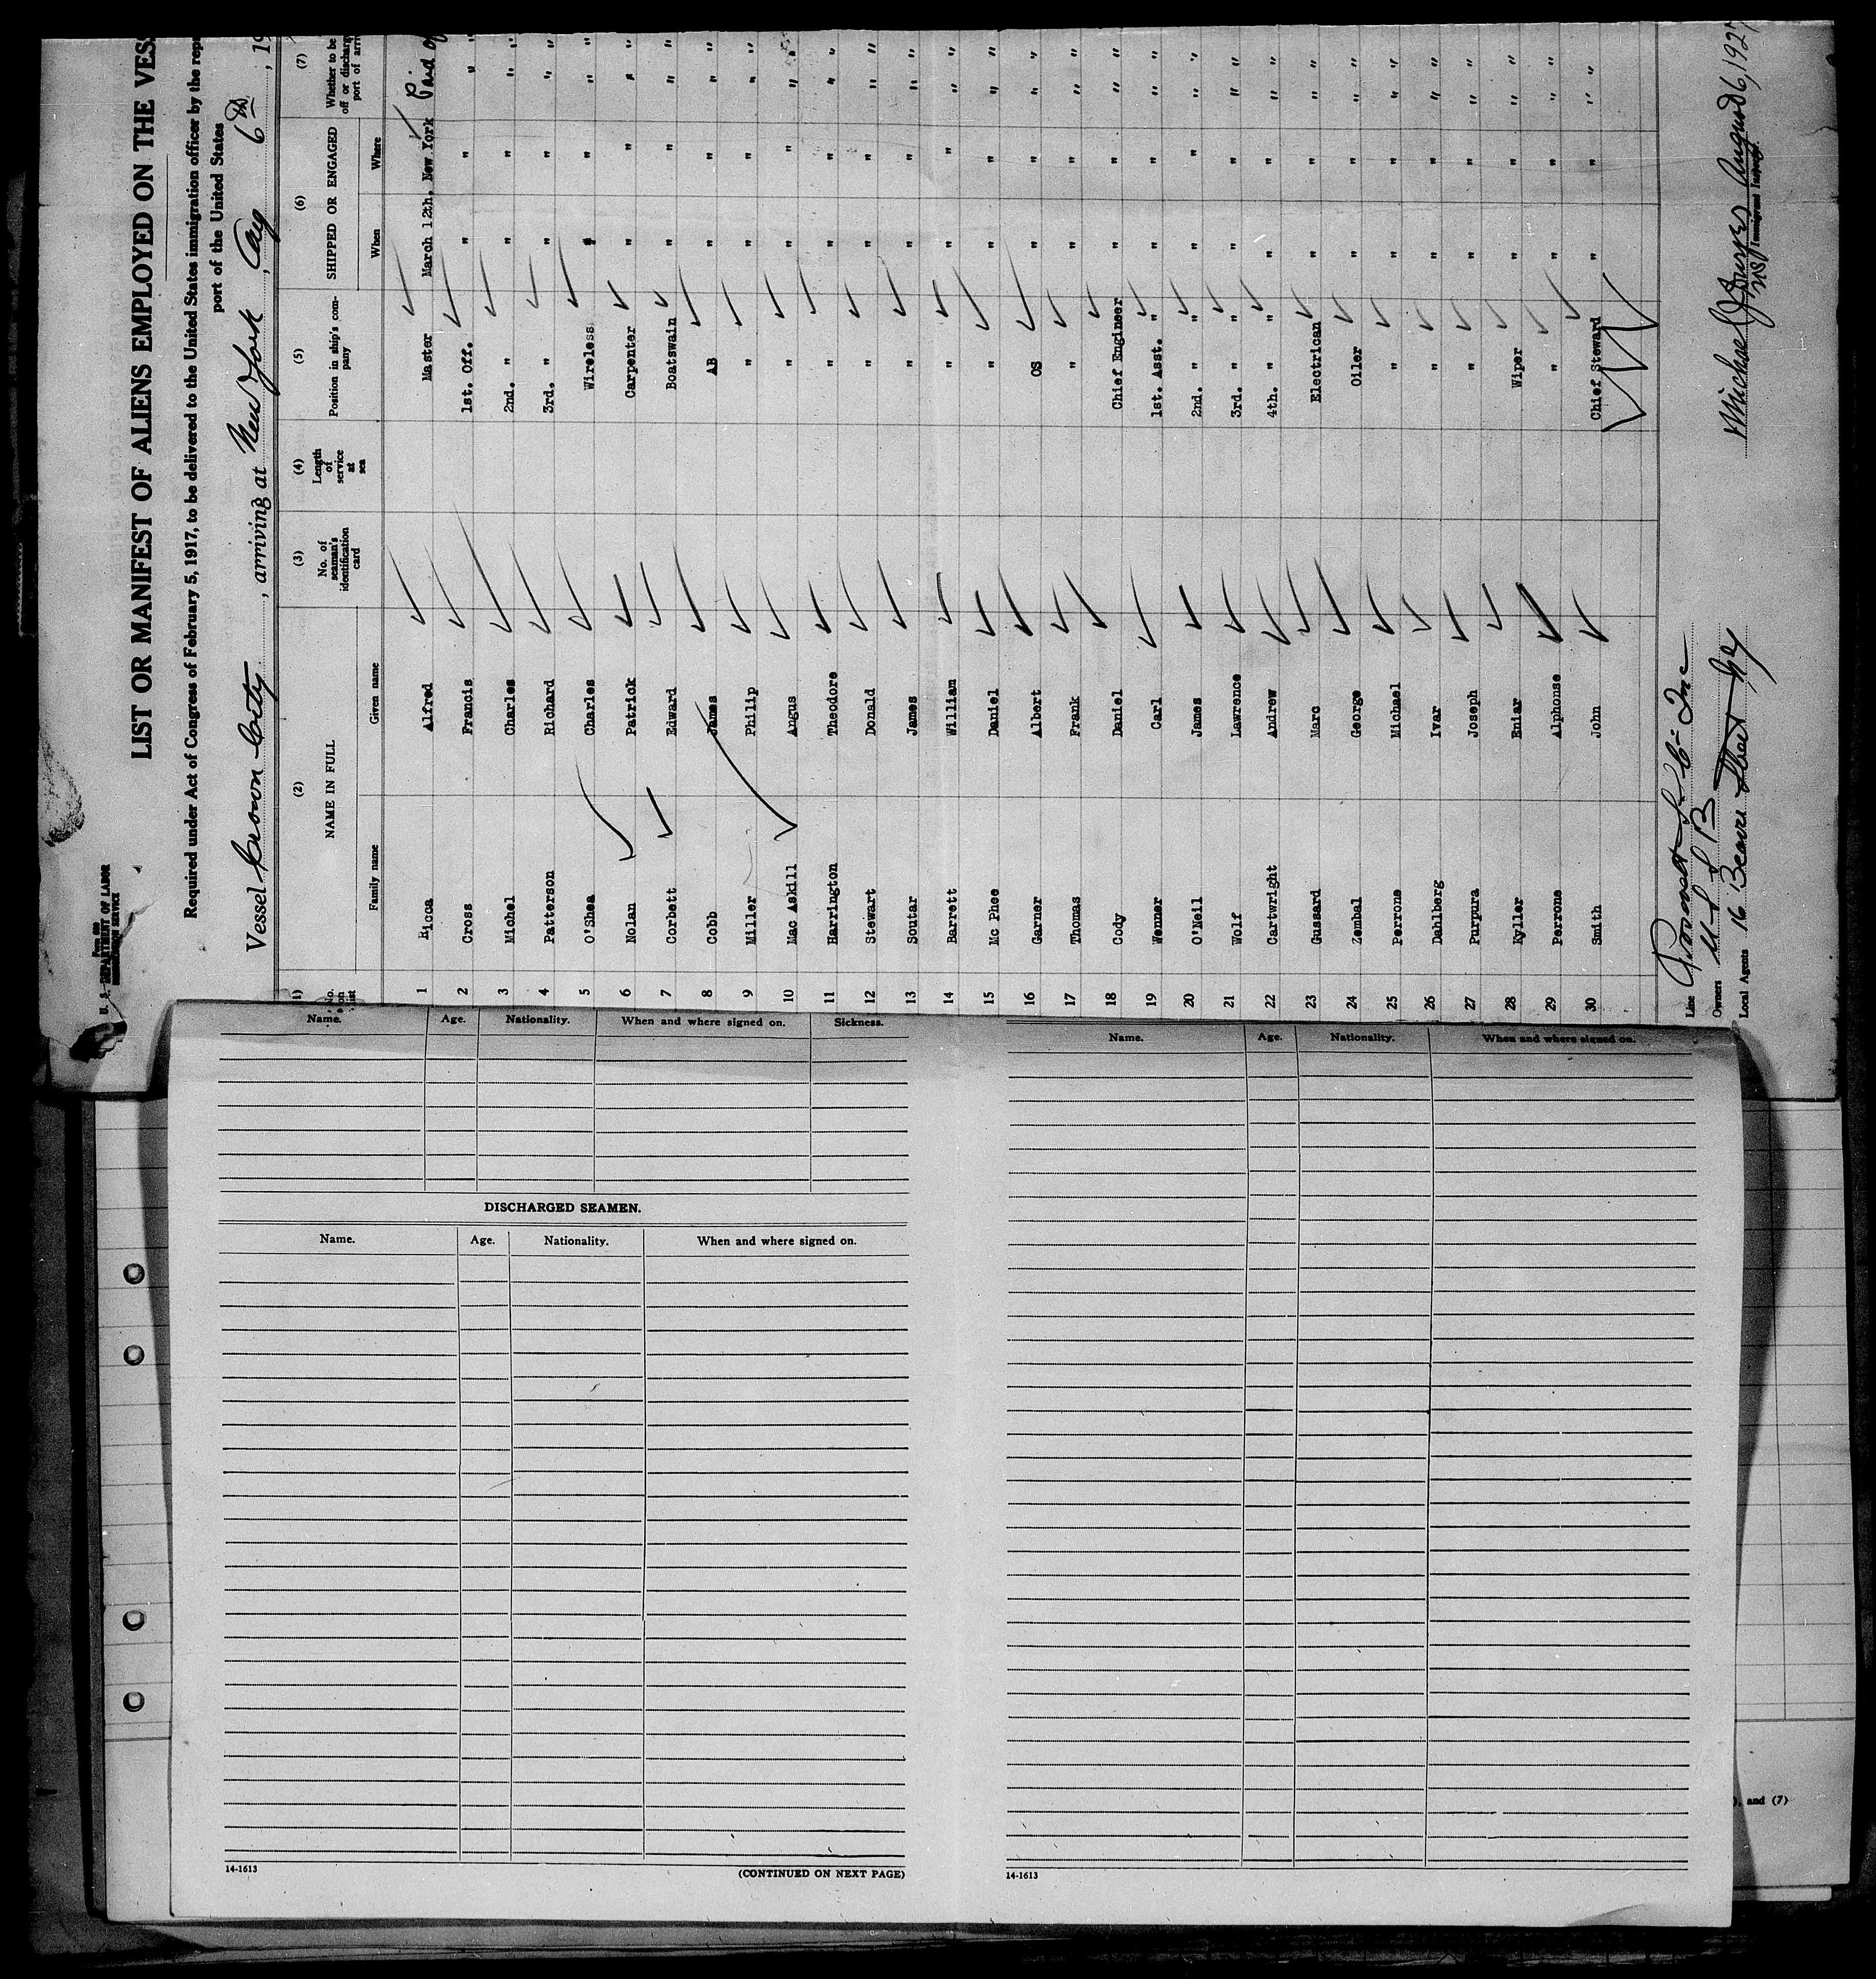 Form 689
U. S. DEPARTMENT OF LABOR
IMMIGRATION SERVICE
LIST OR MANIFEST OF ALIENS EMPLOYED ON THE VES
Required under Act of Congress of February 5, 1917, to be delivered to the United States immigration officer by the repr
port of the United States
Vessel Crown City, arriving at New York, Aug 6th, 19
(1) (2) (3) (4) (5) (6) (7)
No. on list NAME IN FULL No. of seaman's identification card Length of service at sea Position in ship's company SHIPPED OR ENGAGED Whether to be off or discharg port of arri
Family name Given name When Where
1 Ricca Alfred Master March 12th, New York Paid of
2 Cross Francis 1st. Off. " " " "
3 Michel Charles 2nd. " " " " "
4 Patterson Richard 3rd. " " " " "
5 O'Shea Charles Wireless " " " "
6 Nolan Patrick Carpenter " " " "
7 Corbett Edward Boatswain " " " "
8 Cobb James AB " " " "
9 Miller Philip " " " " "
10 Mac Askill Angus " " " " "
11 Harrington Theodore " " " " "
12 Stewart Donald " " " " "
13 Soutar James " " " " "
14 Barrett William " " " " "
15 Mc Phee Daniel " " " " "
16 Garner Albert OS " " " "
17 Thomas Frank " " " " "
18 Cody Daniel Chief Engineer " " " "
19 Wenner Carl 1st. Asst. " " " " "
20 O'Neil James 2nd. " " " " " "
21 Wolf Lawrence 3rd. " " " " " "
22 Cartwright Andrew 4th. " " " " " "
23 Gussard Marc Electrican " " " "
24 Zembal George Oiler " " " "
25 Perrone Michael " " " " "
26 Dahlberg Ivar " " " " "
27 Purpura Joseph " " " " "
28 Kyller Eniar Wiper " " " "
29 Perrone Alphonse " " " " "
30 Smith John Chief Steward " " " "
Line
Owners U S S B
Local Agents 16 Beaver Street NY
Michael J August 6, 1927
Immigrant Inspector.
Name. Age. Nationality. When and where signed on. Sickness.
DISCHARGED SEAMEN.
Name. Age. Nationality. When and where signed on.
14-1613 (CONTINUED ON NEXT PAGE)
Name. Age. Nationality. When and where signed on.
14-1613
), and (7)